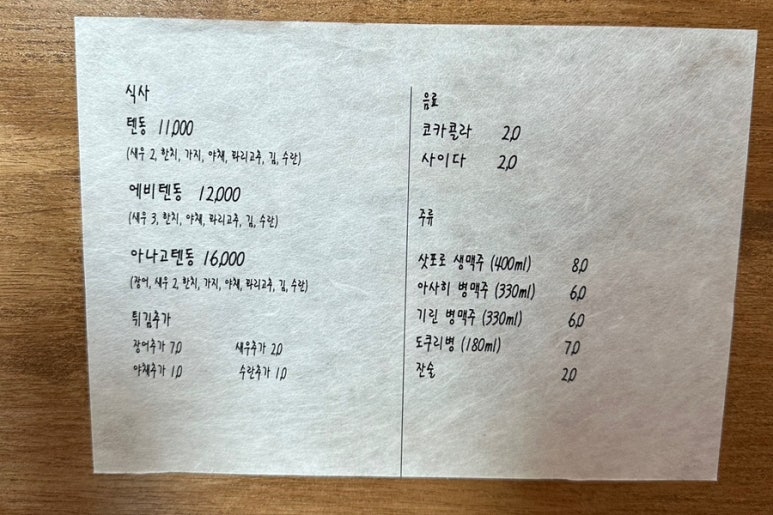 식사
텐동 11,000
(새우 2, 한치, 가지, 야채, 꽈리고추, 김, 수란)
에비텐동 12,000
(새우 3, 한치, 야채, 꽈리고추, 김, 수란)
아나고텐동 16,000
(장어, 새우 2, 한치, 가지, 야채, 꽈리고추, 김, 수란)
튀김추가
장어추가 7,0 새우추가 2,0
야채추가 1,0 수란추가 1,0
음료
코카콜라 2,0
사이다 2,0
주류
삿포로 생맥주 (400ml) 8,0
아사히 병맥주 (330ml) 6,0
기린 병맥주 (330ml) 6,0
도쿠리병 (180ml) 7,0
잔술 2,0